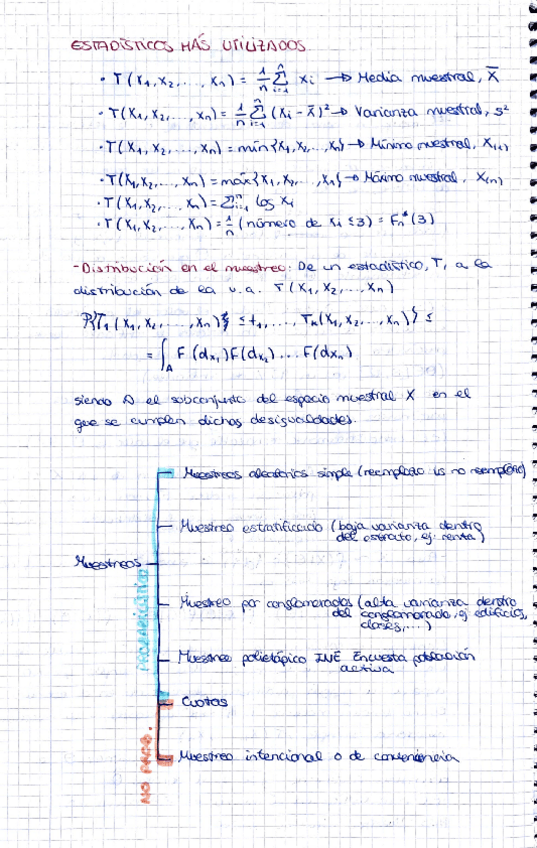 ESTADÍSTICOS MÁS UTILIZADOS
· T(X₁, X₂, ..., Xₙ) = 1/n Σⁿᵢ₌₁ Xi → Media muestral, X̄
· T(X₁, X₂, ..., Xₙ) = 1/n Σⁿᵢ₌₁ (Xi - X̄)² → Varianza muestral, s²
· T(X₁, X₂, ..., Xₙ) = mín{X₁, X₂, ..., Xₙ} → Mínimo muestral, X₍₁₎
· T(X₁, X₂, ..., Xₙ) = máx{X₁, X₂, ..., Xₙ} → Máximo muestral, X₍ₙ₎
· T(X₁, X₂, ..., Xₙ) = Σⁿᵢ₌₁ log Xi
· T(X₁, X₂, ..., Xₙ) = 1/n (número de Xi ≤ 3) = Fₙ*(3)
- Distribución en el muestreo: De un estadístico, T, a la
distribución de la v.a. T(X₁, X₂, ..., Xₙ)
P{T₁(X₁, X₂, ..., Xₙ)} ≤ t₁, ..., Tₖ(X₁, X₂, ..., Xₙ)} ≤
= ∫_A F(dx₁)F(dx₂)...F(dxₙ)
siendo A el subconjunto del espacio muestral X en el
que se cumplen dichas desigualdades.
Muestreos
PROBABILÍSTICO
Muestreos aleatorios simple (reemplazo vs no reemplazo)
Muestreo estratificado (baja varianza dentro
del estrato, ej: renta)
Muestreo por conglomerados (alta varianza dentro
del conglomerado, ej edificios,
clases, ...)
Muestreo polietápico INE Encuesta población
activa
NO PROB.
Cuotas
Muestreo intencional o de conveniencia